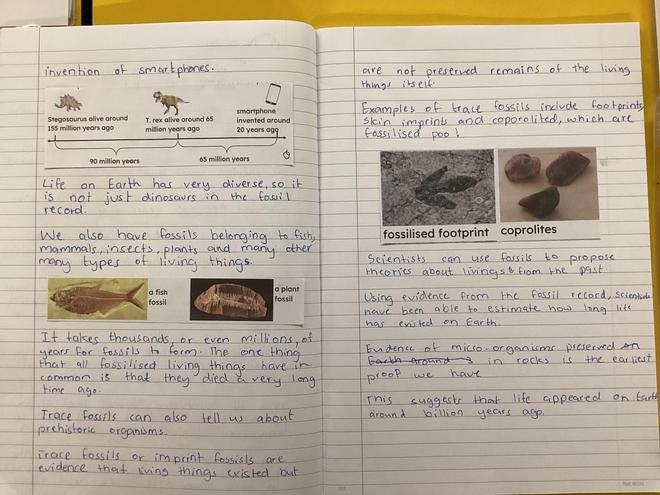 invention of smartphones.
Stegosaurus alive around
155 million years ago
T. rex alive around 65
million years ago
smartphone
invented around
20 years ago
90 million years
65 million years
Life on Earth has very diverse, so it
is not just dinosaurs in the fossil
record.
We also have fossils belonging to fish,
mammals, insects, plants and many other
many types of living things.
a fish
fossil
a plant
fossil
It takes thousands, or even millions, of
years for fossils to form. The one thing
that all fossilised living things have in
common is that they died a very long
time ago.
Trace fossils can also tell us about
prehistoric organisms.
Trace fossils or imprint fossisls are
evidence that living things existed but
are not preserved remains of the living
things itself.
Examples of trace fossils include footprints,
skin imprints and coporolited, which are
fossilised poo!
fossilised footprint
coprolites
Scientists can use fossils to propose
theories about livings from the past.
Using evidence from the fossil record, scientists
have been able to estimate how long life
has existed on Earth.
Evidence of micro-organisms preserved on
Earth around in rocks is the earliest
proof we have
This suggests that life appeared on Earth
around billion years ago.